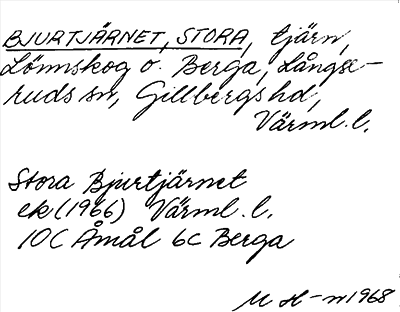 BJURTJÄRNET, STORA, tjärn,
Lönnskog o. Berga, Långse-
ruds sn, Gillbergs hd,
Värml. l.
Stora Bjurtjärnet
ek (1966) Värml. l.
10C Åmål 6c Berga
M H-n 1968